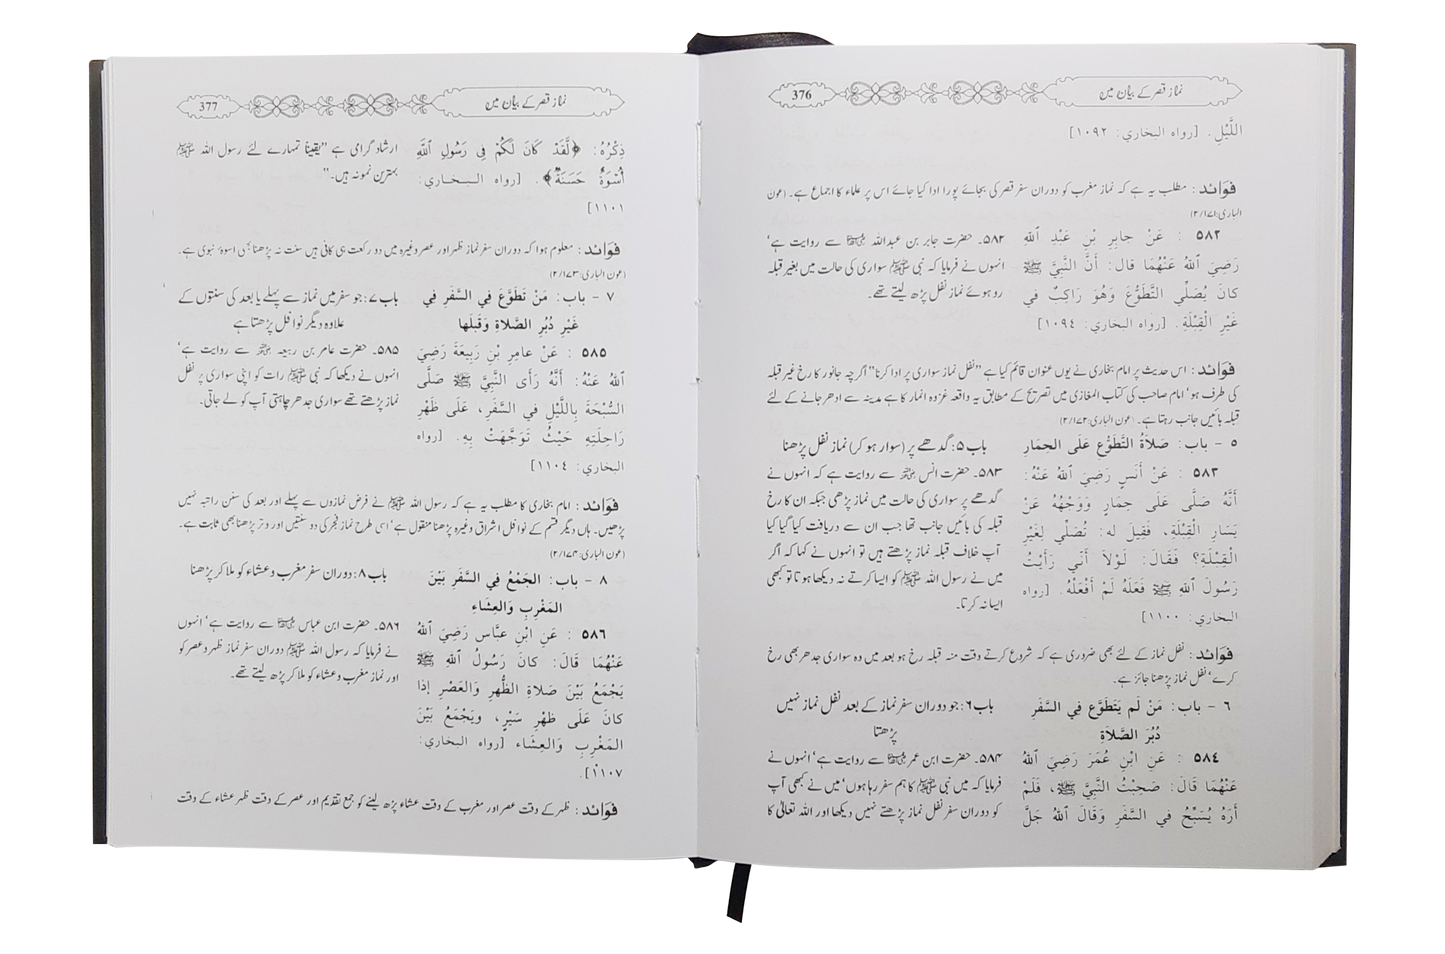 376
نماز قصر کے بیان میں
اللَّيْلِ. [رواه البخاري: ١٠٩٢]
فوَائد : مطلب یہ ہے کہ نماز مغرب کو دوران سفر قصر کی بجائے پورا ادا کیا جائے اس پر علماء کا اجماع ہے۔ (عون
الباری:۲/۱۷۱)
٥٨٢ : عَنْ جابِرِ بْنِ عَبْدِ ٱللهِ
رَضِيَ ٱللهُ عَنْهُمَا قال: أَنَّ النَّبِيَّ ﷺ
كانَ يُصَلِّي التَّطَوُّعَ وَهُوَ رَاكِبٌ في
غَيْرِ الْقِبْلَةِ. [رواه البخاري: ١٠٩٤]
۵۸۲۔ حضرت جابر بن عبداللہ رضی اللہ عنہ سے روایت ہے'
انہوں نے فرمایا کہ نبی ﷺ سواری کی حالت میں بغیر قبلہ
رو ہوئے نماز نفل پڑھ لیتے تھے۔
فوَائد : اس حدیث پر امام بخاری نے یوں عنوان قائم کیا ہے "نفل نماز سواری پر ادا کرنا" اگرچہ جانور کا رخ غیر قبلہ
کی طرف ہو' امام صاحب کی کتاب المغازی میں تصریح کے مطابق یہ واقعہ غزوہ انمار کا ہے مدینہ سے ادھر جانے کے لئے
قبلہ بائیں جانب رہتا ہے۔ (عون الباری:۲/۱۷۲)
٥ - باب: صَلاَةُ التَّطَوُّعِ عَلَى الحِمَارِ
باب ۵: گدھے پر (سوار ہو کر) نماز نفل پڑھنا
٥٨٣ : عَنْ أَنَسٍ رَضِيَ ٱللهُ عَنْهُ:
أَنَّهُ صَلَّى عَلَى حِمَارٍ وَوَجْهُهُ عَنْ
يَسَارِ الْقِبْلَةِ، فَقِيلَ له: تُصَلِّي لِغَيْرِ
الْقِبْلَةِ؟ فَقَالَ: لَوْلاَ أَنِّي رَأَيْتُ
رَسُولَ ٱللهِ ﷺ فَعَلَهُ لَمْ أَفْعَلْهُ. [رواه
البخاري: ١١٠٠]
۵۸۳۔ حضرت انس رضی اللہ عنہ سے روایت ہے کہ انہوں نے
گدھے پر سواری کی حالت میں نماز پڑھی جبکہ ان کا رخ
قبلہ کی بائیں جانب تھا جب ان سے دریافت کیا گیا کیا
آپ خلاف قبلہ نماز پڑھتے ہیں تو انہوں نے کہا کہ اگر
میں نے رسول اللہ ﷺ کو ایسا کرتے نہ دیکھا ہوتا تو کبھی
ایسا نہ کرتا۔
فوَائد : نفل نماز کے لئے بھی ضروری ہے کہ شروع کرتے وقت منہ قبلہ رخ ہو بعد میں وہ سواری جدھر بھی رخ
کرے' نفل نماز پڑھنا جائز ہے۔
٦ - باب: مَنْ لَم يَتَطَوَّع فِي السَّفَرِ
دُبُرَ الصَّلاَةِ
باب ۶: جو دوران سفر نماز کے بعد نفل نماز نہیں
پڑھتا
٥٨٤ : عَنِ ابْنِ عُمَرَ رَضِيَ ٱللهُ
عَنْهُمَا قالَ: صَحِبْتُ النَّبِيَّ ﷺ، فَلَمْ
أَرَهُ يُسَبِّحُ في السَّفَرِ وَقَالَ ٱللهُ جَلَّ
۵۸۴۔ حضرت ابن عمر رضی اللہ عنہ سے روایت ہے' انہوں نے
فرمایا کہ میں نبی ﷺ کا ہم سفر رہا ہوں' میں نے کبھی آپ
کو دوران سفر نفل نماز پڑھتے نہیں دیکھا اور اللہ تعالیٰ کا
377
نماز قصر کے بیان میں
ذِكْرُهُ: ﴿لَّقَدْ كَانَ لَكُمْ فِى رَسُولِ ٱللَّهِ
أُسْوَةٌ حَسَنَةٌ﴾. [رواه البخاري:
١١٠١]
ارشاد گرامی ہے "یقیناً تمہارے لئے رسول اللہ ﷺ
بہترین نمونہ ہیں۔"
فوَائد : معلوم ہوا کہ دوران سفر نماز ظہر اور عصر وغیرہ میں دو رکعت ہی کافی ہیں سنت نہ پڑھنا ہی اسوۂ نبوی ہے۔
(عون الباری:۲/۱۷۳)
٧ - باب: مَنْ تَطَوَّعَ فِي السَّفَرِ فِي
غَيْرِ دُبُرِ الصَّلاةِ وَقَبلَها
باب ۷: جو سفر میں نماز سے پہلے یا بعد کی سنتوں کے
علاوہ دیگر نوافل پڑھتا ہے
٥٨٥ : عَنْ عامِرِ بْنِ رَبِيعَةَ رَضِيَ
ٱللهُ عَنْهُ: أَنَّهُ رَأَى النَّبِيَّ ﷺ صَلَّى
السُّبْحَةَ بِاللَّيْلِ في السَّفَرِ، عَلَى ظَهْرِ
رَاحِلَتِهِ حَيْثُ تَوَجَّهَتْ بِهِ. [رواه
البخاري: ١١٠٤]
۵۸۵۔ حضرت عامر بن ربیعہ رضی اللہ عنہ سے روایت ہے'
انہوں نے دیکھا کہ نبی ﷺ رات کو اپنی سواری پر نفل
نماز پڑھتے تھے سواری جدھر چاہتی آپ کو لے جاتی۔
فوَائد : امام بخاری کا مطلب یہ ہے کہ رسول اللہ ﷺ نے فرض نمازوں سے پہلے اور بعد کی سنن راتبہ نہیں
پڑھیں۔ ہاں دیگر قسم کے نوافل اشراق وغیرہ پڑھنا منقول ہے' اسی طرح نماز فجر کی دو سنتیں اور وتر پڑھنا بھی ثابت ہے۔
(عون الباری:۲/۱۷۴)
٨ - باب: الجَمْعُ فِي السَّفَرِ بَيْنَ
المَغْرِبِ وَالعِشَاءِ
باب ۸: دوران سفر مغرب و عشاء کو ملا کر پڑھنا
٥٨٦ : عَنِ ابْنِ عبَّاسٍ رَضِيَ ٱللهُ
عَنْهُمَا قَالَ: كانَ رَسُولُ ٱللهِ ﷺ
يَجْمَعُ بَيْنَ صَلاةِ الظُّهْرِ وَالعَصْرِ إذَا
كانَ عَلَى ظَهْرِ سَيْرٍ، ويَجْمَعُ بَيْنَ
المَغْرِبِ وَالعِشَاءِ [رواه البخاري:
١١٠٧].
۵۸۶۔ حضرت ابن عباس رضی اللہ عنہ سے روایت ہے' انہوں
نے فرمایا کہ رسول اللہ ﷺ دوران سفر نماز ظہر و عصر کو
اور نماز مغرب و عشاء کو ملا کر پڑھ لیتے تھے۔
فوَائد : ظہر کے وقت عصر اور مغرب کے وقت عشاء پڑھ لینے کو جمع تقدیم اور عصر کے وقت ظہر عشاء کے وقت